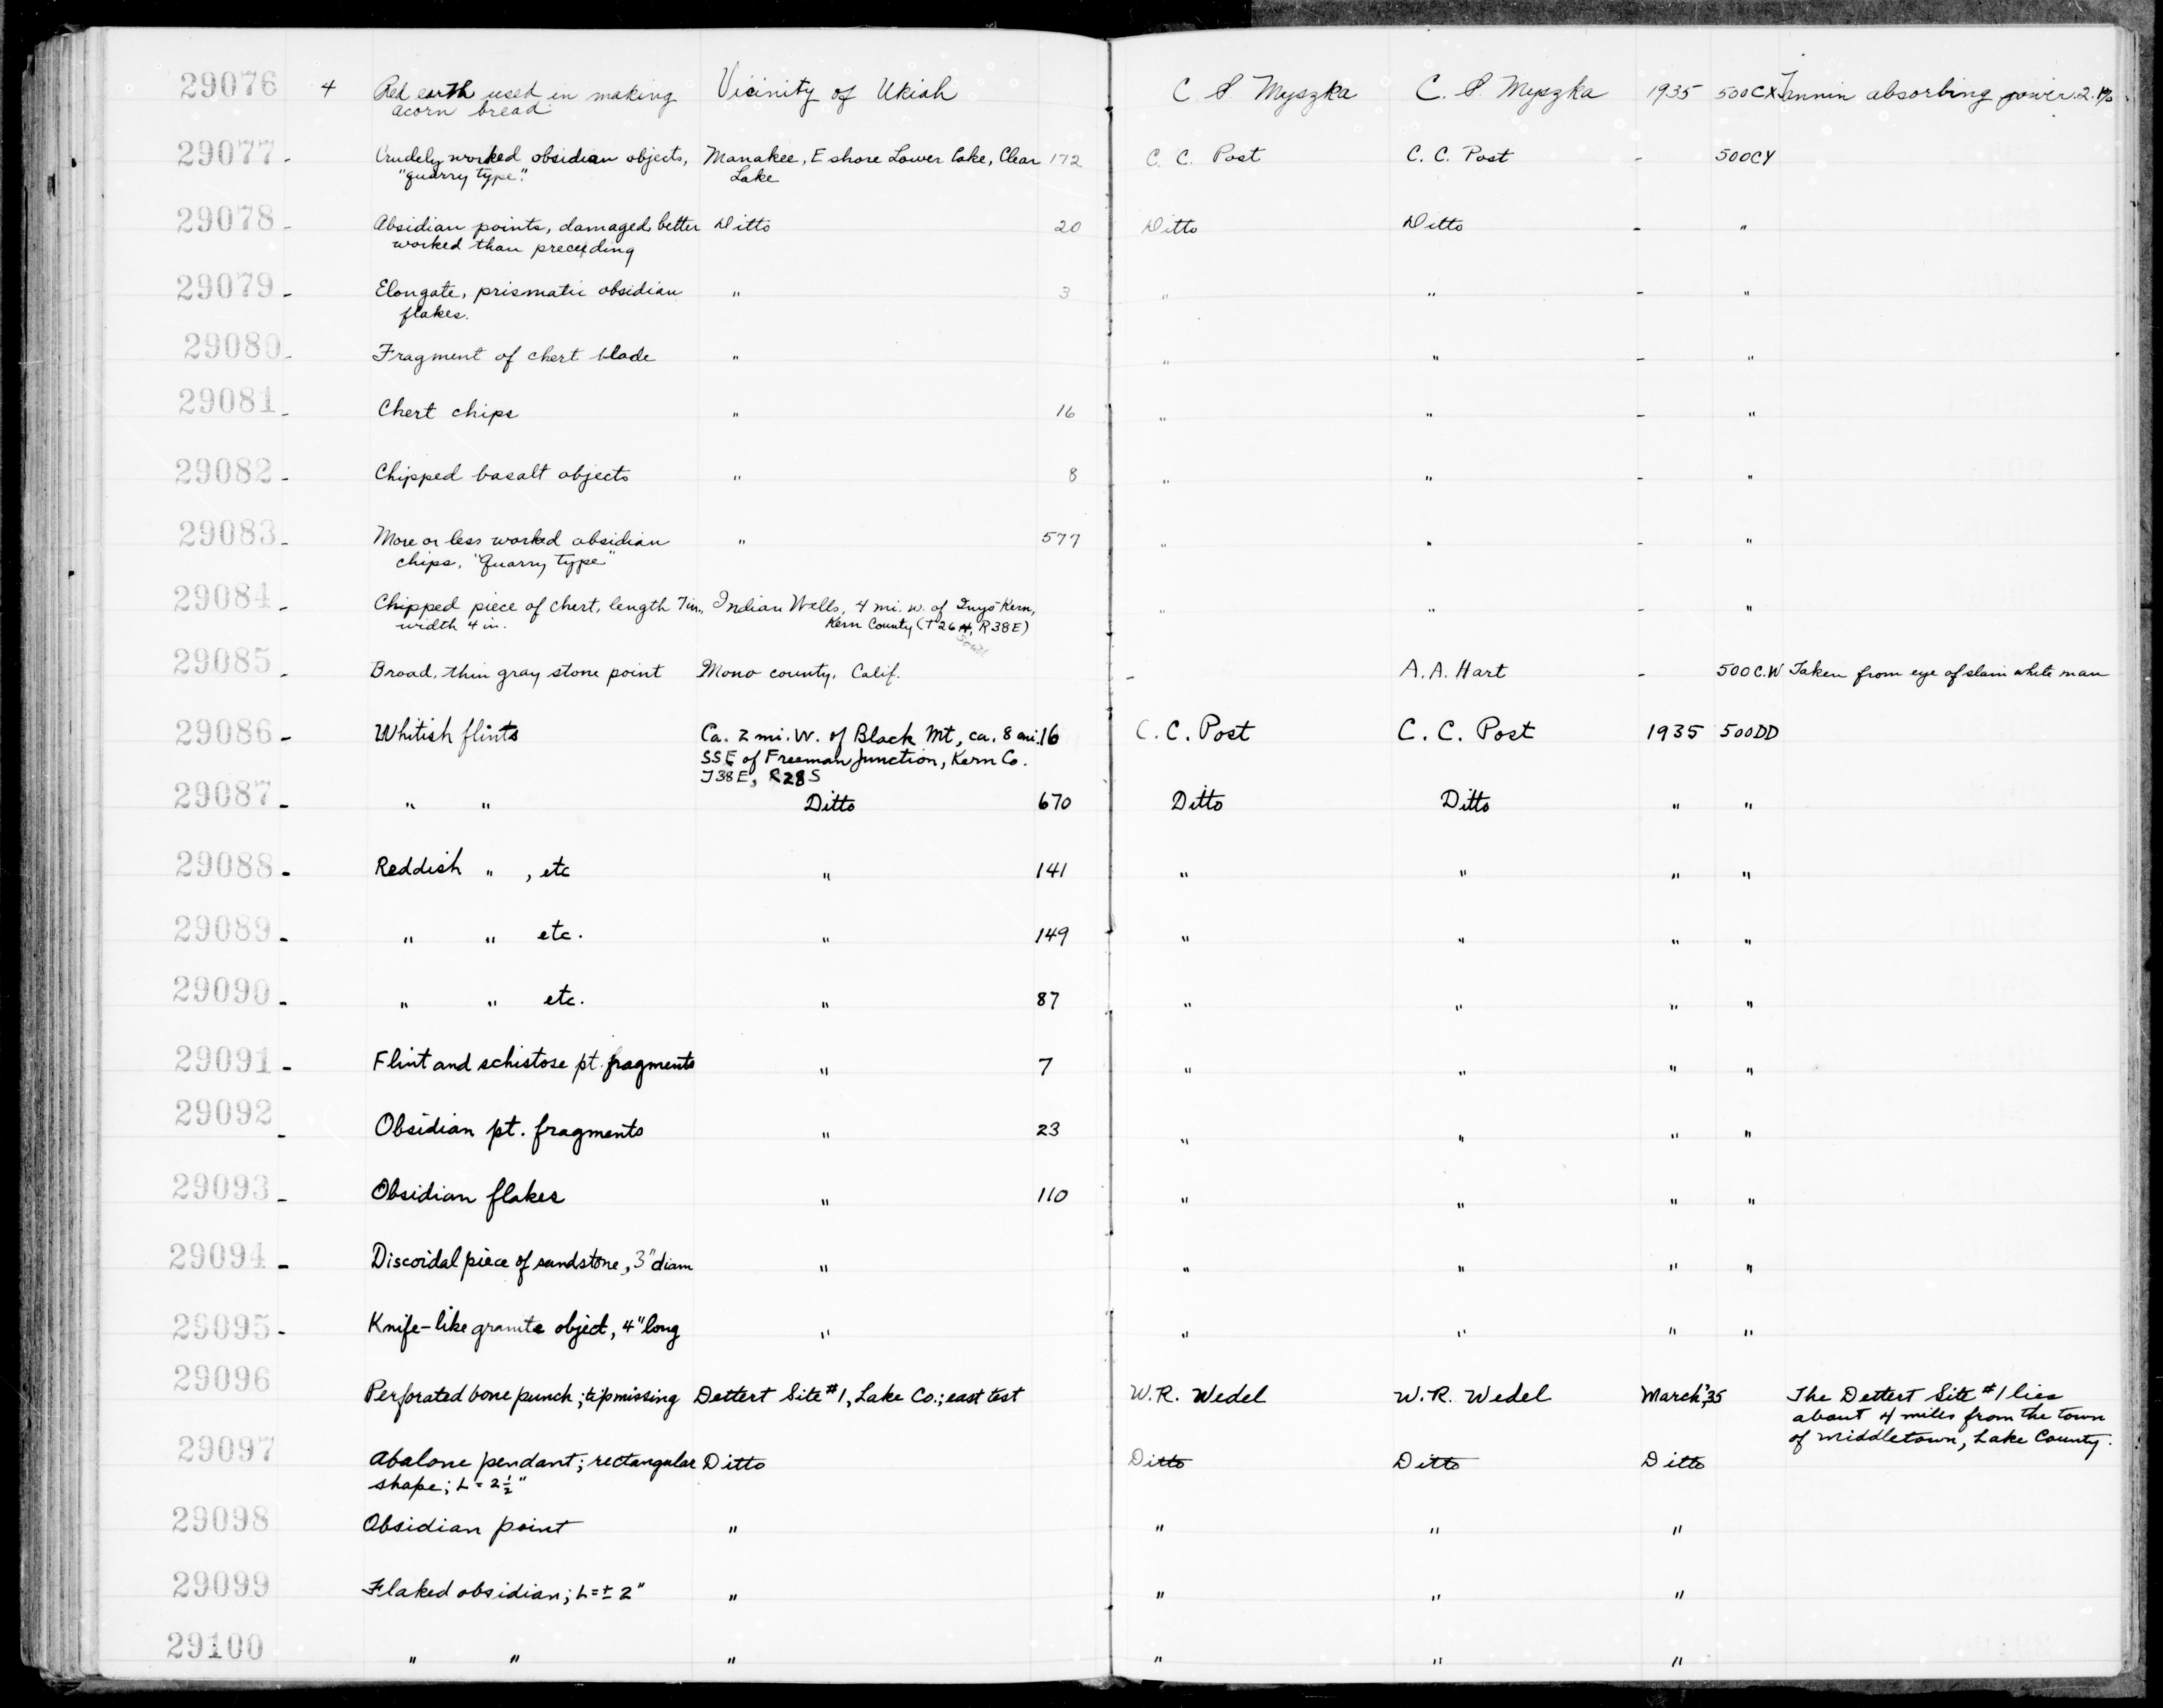 29076 4 Red earth used in making Vicinity of Ukiah C. S Myszka C. S. Myszka 1935 500CX Tannin absorbing power 2.1%
acorn bread
29077 - Crudely worked obsidian objects, Manakee, E shore Lower Lake, Clear 172 C. C. Post C. C. Post - 500CY
"quarry type". Lake
29078 - Absidian points, damaged, better Ditto 20 Ditto Ditto - "
worked than preceding
29079 - Elongate, prismatic obsidian " 3 " " - "
flakes.
29080 - Fragment of chert blade " " " - "
29081 - Chert chips " 16 " " - "
29082 - Chipped basalt objects " 8 " " - "
29083 - More or less worked obsidian " 577 " " - "
chips, "Quarry type"
29084 - Chipped piece of chert, length 7 in., Indian Wells, 4 mi. w. of Inyo-Kern, " " - "
width 4 in. Kern County (T26 R38E)
South
29085 - Broad, thin gray stone point Mono county, Calif. - A. A. Hart - 500C.W Taken from eye of slain white man
29086 - Whitish flints Ca. 2 mi. W. of Black Mt, ca. 8 mi. 16 C. C. Post C. C. Post 1935 500DD
SSE of Freeman Junction, Kern Co.
T38E, R28S
29087 - " " Ditto 670 Ditto Ditto " "
29088 - Reddish " , etc " 141 " " " "
29089 - " " etc. " 149 " " " "
29090 - " " etc. " 87 " " " "
29091 - Flint and schistose pt. fragments " 7 " " " "
29092 - Obsidian pt. fragments " 23 " " " "
29093 - Obsidian flakes " 110 " " " "
29094 - Discoidal piece of sandstone, 3" diam " " " " "
29095 - Knife-like granite object, 4" long " " " " "
29096 Perforated bone punch; tip missing Dettert Site #1, Lake Co.; east test W. R. Wedel W. R. Wedel March '35 The Dettert Site #1 lies
about 4 miles from the town
of Middletown, Lake County.
29097 Abalone pendant; rectangular Ditto Ditto Ditto Ditto
shape; L = 2½"
29098 Obsidian point " " " "
29099 Flaked obsidian; L = ± 2" " " " "
29100 " " " " " "